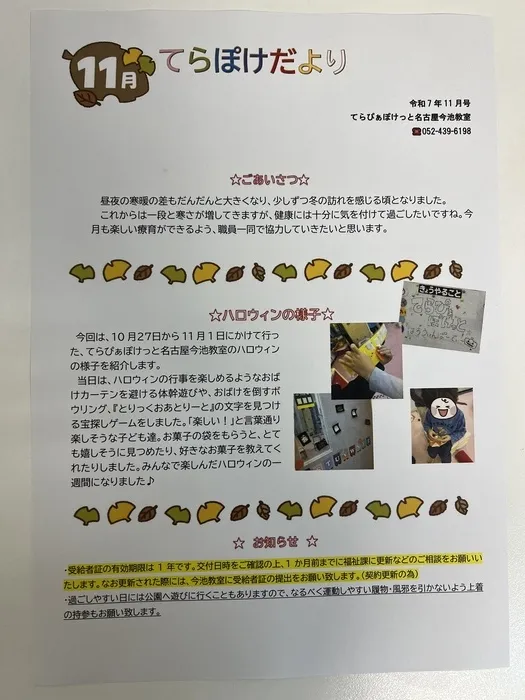 11月 てらぽけだより
令和7年11月号
てらぴぁぽけっと名古屋今池教室
☎052-439-6198
☆ごあいさつ☆
昼夜の寒暖の差もだんだんと大きくなり、少しずつ冬の訪れを感じる頃となりました。
これからは一段と寒さが増してきますが、健康には十分に気を付けて過ごしたいですね。今
月も楽しい療育ができるよう、職員一同で協力していきたいと思います。
☆ハロウィンの様子☆
今回は、10月27日から11月1日にかけて行っ
た、てらぴぁぽけっと名古屋今池教室のハロウィン
の様子を紹介します。
当日は、ハロウィンの行事を楽しめるようなおば
けカーテンを避ける体幹遊びや、おばけを倒すボ
ウリング、『とりっくおあとりーと』の文字を見つけ
る宝探しゲームをしました。「楽しい！」と言葉通り
楽しそうな子ども達。お菓子の袋をもらうと、とて
も嬉しそうに見つめたり、好きなお菓子を教えてく
れたりしました。みんなで楽しんだハロウィンの一
週間になりました♪
きょうやること
☆ お知らせ ☆
・受給者証の有効期限は1年です。交付日時をご確認の上、1か月前までに福祉課に更新などのご相談をお願いい
たします。なお更新された際には、今池教室に受給者証の提出をお願い致します。（契約更新の為）
・過ごしやすい日には公園へ遊びに行くこともありますので、なるべく運動しやすい履物・風邪を引かないよう上着
の持参もお願い致します。